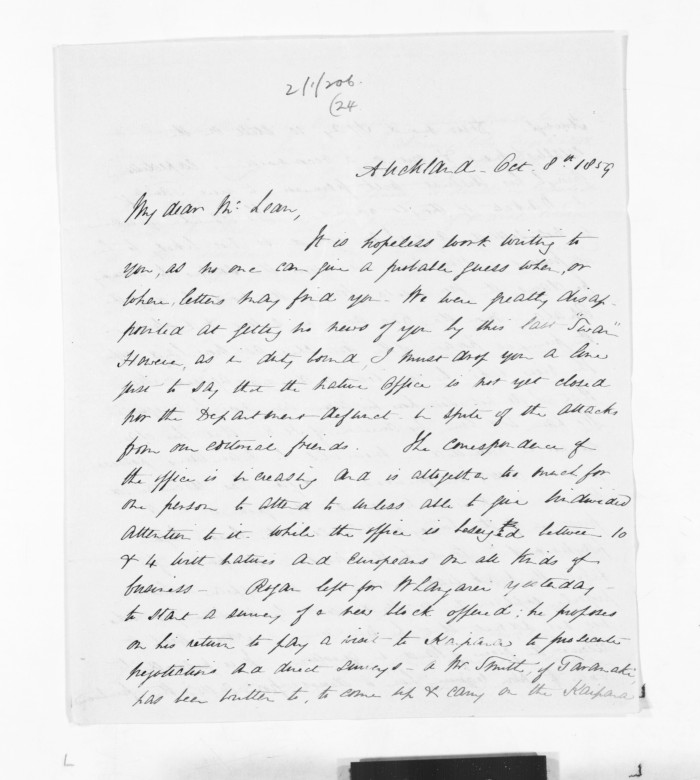 2/1/206.
(24
Auckland - Oct. 8th 1859
My dear Mc Lean,
It is hopeless work writing to
you, as no one can give a probable guess when, or
where, letters may find you. We were greatly disap-
pointed at getting no news of you by this last "Swan"
However, as in duty bound, I must drop you a line
just to say that the native Office is not yet closed
nor the Department defunct in spite of the attacks
from our editorial friends. The correspondence of
the office is increasing and is altogether too much for
one person to attend to unless able to give undivided
attention to it. while the office is beseiged between 10
& 4 with natives and Europeans on all kinds of
business - Rogan left for Whangarei yesterday
to start a survey of a new block offered; he proposes
on his return to pay a visit to Kaipara to prosecute
negotiations and direct surveys - a Mr Smith, of Taranaki,
has been written to, to come up & carry on the Kaipara